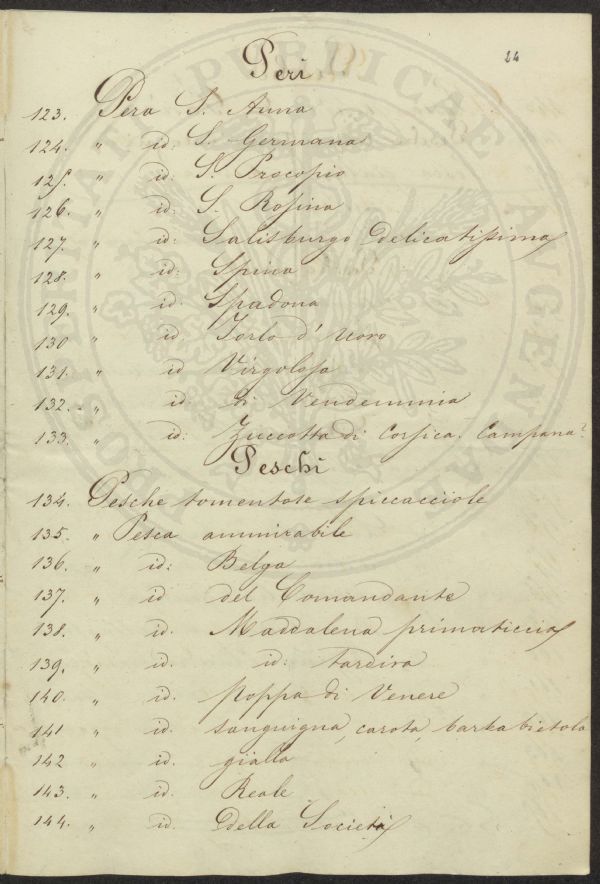 24
Peri
123. Pera S. Anna
124. " id: S. Germana
125. " id: S. Procopio
126. " id: S. Rosina
127. " id: Salisburgo Delicatissima
128. " id: Spina
129. " id. Spadona
130 " id. Torlo d' Uovo
131. " id Virgolosa
132. " id. di Vendemmia
133. " id: Zuccotta di Corsica. Campana?
Peschi
134. Pesche tomentose spiccacciole
135. " Pesca ammirabile
136. " id: Belga
137. " id del Comandante
138. " id. Maddalena primaticcia
139. " id. id: tardiva
140. " id. poppa di Venere
141 " id. sanguigna, carota, barbabietola
142 " id. gialla
143. " id. Reale
144. " id. Della Società